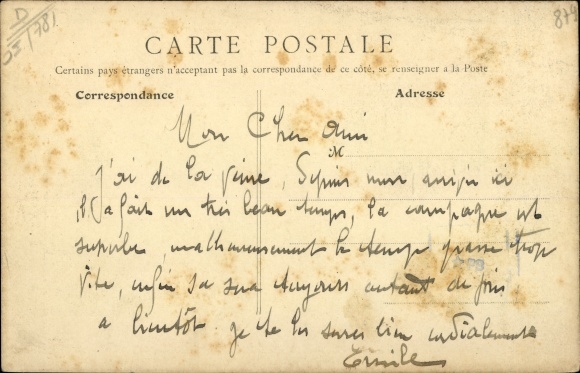 D
95 (78)
879
CARTE POSTALE
Certains pays étrangers n'acceptant pas la correspondance de ce côté, se renseigner à la Poste
Correspondance
Adresse
Mon Cher Ami
M
J'ai de la veine, Depuis mon arrivée ici
il a fait un très beau temps, la campagne est
superbe, malheureusement le temps passe trop
vite, enfin sa sera toujours autant de pris
a bientôt je te les serres bien cordialement
Emile